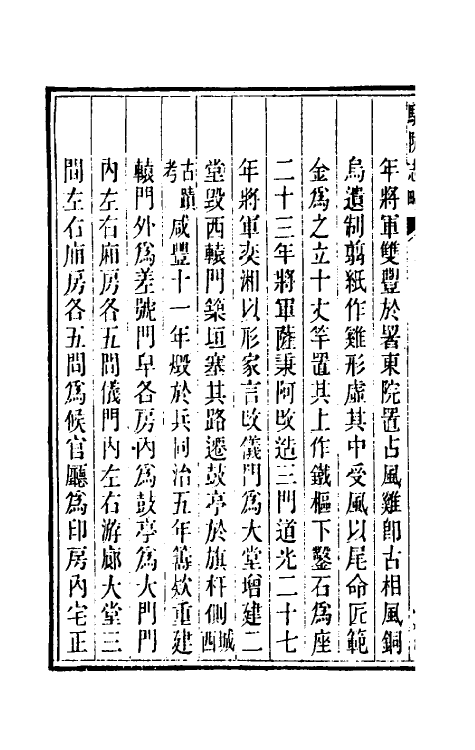 年將軍雙豐於署東院置占風雞卽古相風銅
烏遺制翦紙作雞形虛其中受風以尾命匠範
金爲之立十丈竿置其上作鐵樞下鑿石爲座
二十三年將軍薩秉阿改造三門道光二十七
年將軍奕湘以形家言改儀門爲大堂增建二
堂毀西轅門築垣塞其路遷鼓亭於旗杆側西城
古蹟考咸豐十一年燬於兵同治五年籌欵重建
轅門外爲差號門皁各房內爲鼓亭爲大門門
內左右廂房各五間儀門內左右游廊大堂三
間左右廂房各五間爲候官廳爲印房內宅正